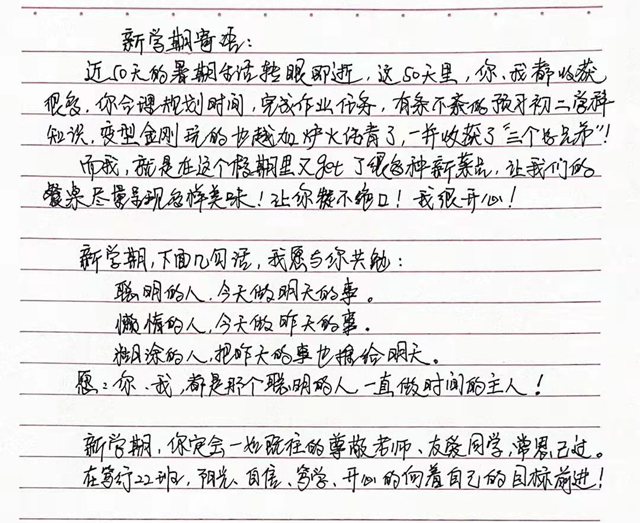 新学期寄语：
近50天的暑期生活转眼即逝，这50天里，你、我都收获
很多，你合理规划时间，完成作业任务，有条不紊的预习初二学科
知识，变型金刚玩的也越加炉火纯青了，一并收获了“三个好兄弟”！
而我，就是在这个假期里又get了很多种新菜品，让我们的
餐桌尽量呈现各样美味！让你赞不绝口！我很开心！
新学期，下面几句话，我愿与你共勉：
聪明的人，今天做明天的事。
懒惰的人，今天做昨天的事。
糊涂的人，把昨天的事也推给明天。
愿：你、我，都是那个聪明的人一直做时间的主人！
新学期，你定会一如既往的尊敬老师、友爱同学，常思己过。
在笃行22班，阳光、自信、笃学、开心的向着自己的目标前进！